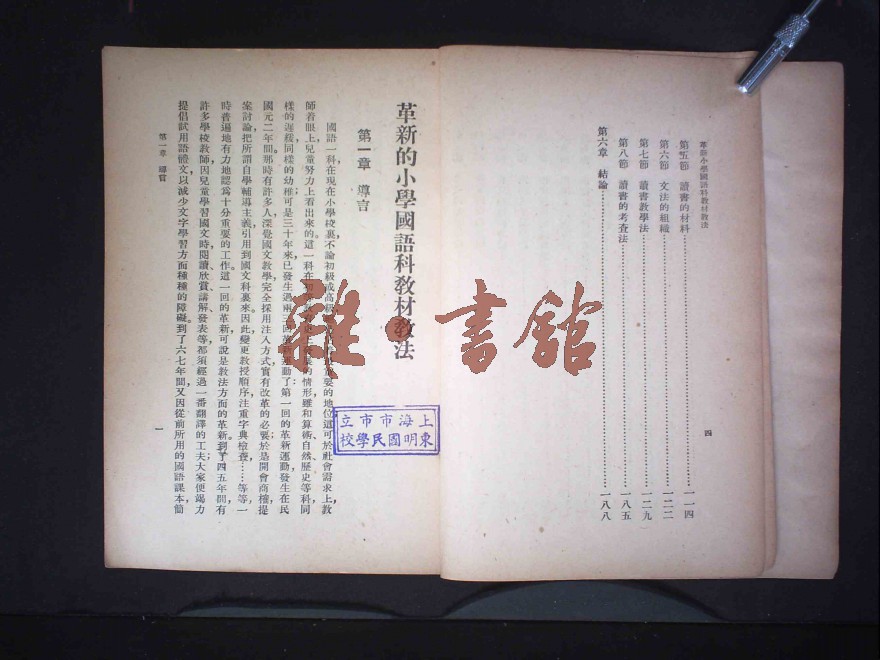 革新小學國語科教材教法
第五節　讀書的材料……一一四
第六節　文法的組織……一二二
第七節　讀書教學法……一二九
第八節　讀書的考查法……一八五
第六章　結論……一八八
四
革新的小學國語科教材教法
第一章　導言
國語一科在現在小學校裏不論初級或高級要的地位這可於社會需求上教
師着眼上兒童努力上看出來的。這一科在的情形雖和算術、自然、歷史等科同
樣的遲緩同樣的幼稚;可是三十年來已發生過兩三回革新運動了。第一回的革新運動發生在民
國元二年間。那時有許多人深覺國文教學完全採用注入方式實有改革的必要;於是開會商榷提
案討論把所謂自學輔導主義引用到國文科裏來因此變更教授順序注重字典檢查……等等一
時普遍地有力地認爲十分重要的工作。這一回的革新可說是教法方面的革新。到了四五年間有
許多學校教師因兒童學習國文時閱讀欣賞講解發表等都須經過一番翻譯的工夫大家便竭力
提倡試用語體文以減少文字學習方面種種的障礙。到了六七年間又因從前所用的國語課本簡
第一章　導言
一
雜·書館
上海市市立
東明國民學校